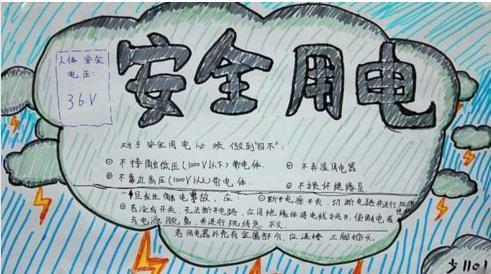 安全用电
人体安全
电压：
36V
对于安全用电必须做到"四不"：
不接触低压（1000V以下）带电体
不弄湿用电器
不靠近高压（1000V以上）带电体
不损坏绝缘层
一旦发生触电事故，应
断开电源开关，切断电路并进行
若没有开关，无法断开电路，应用绝缘体将电线挑开，使触电者
与电源脱离，并进行现场急救
若用电器外壳有金属部分，应连接三脚插头